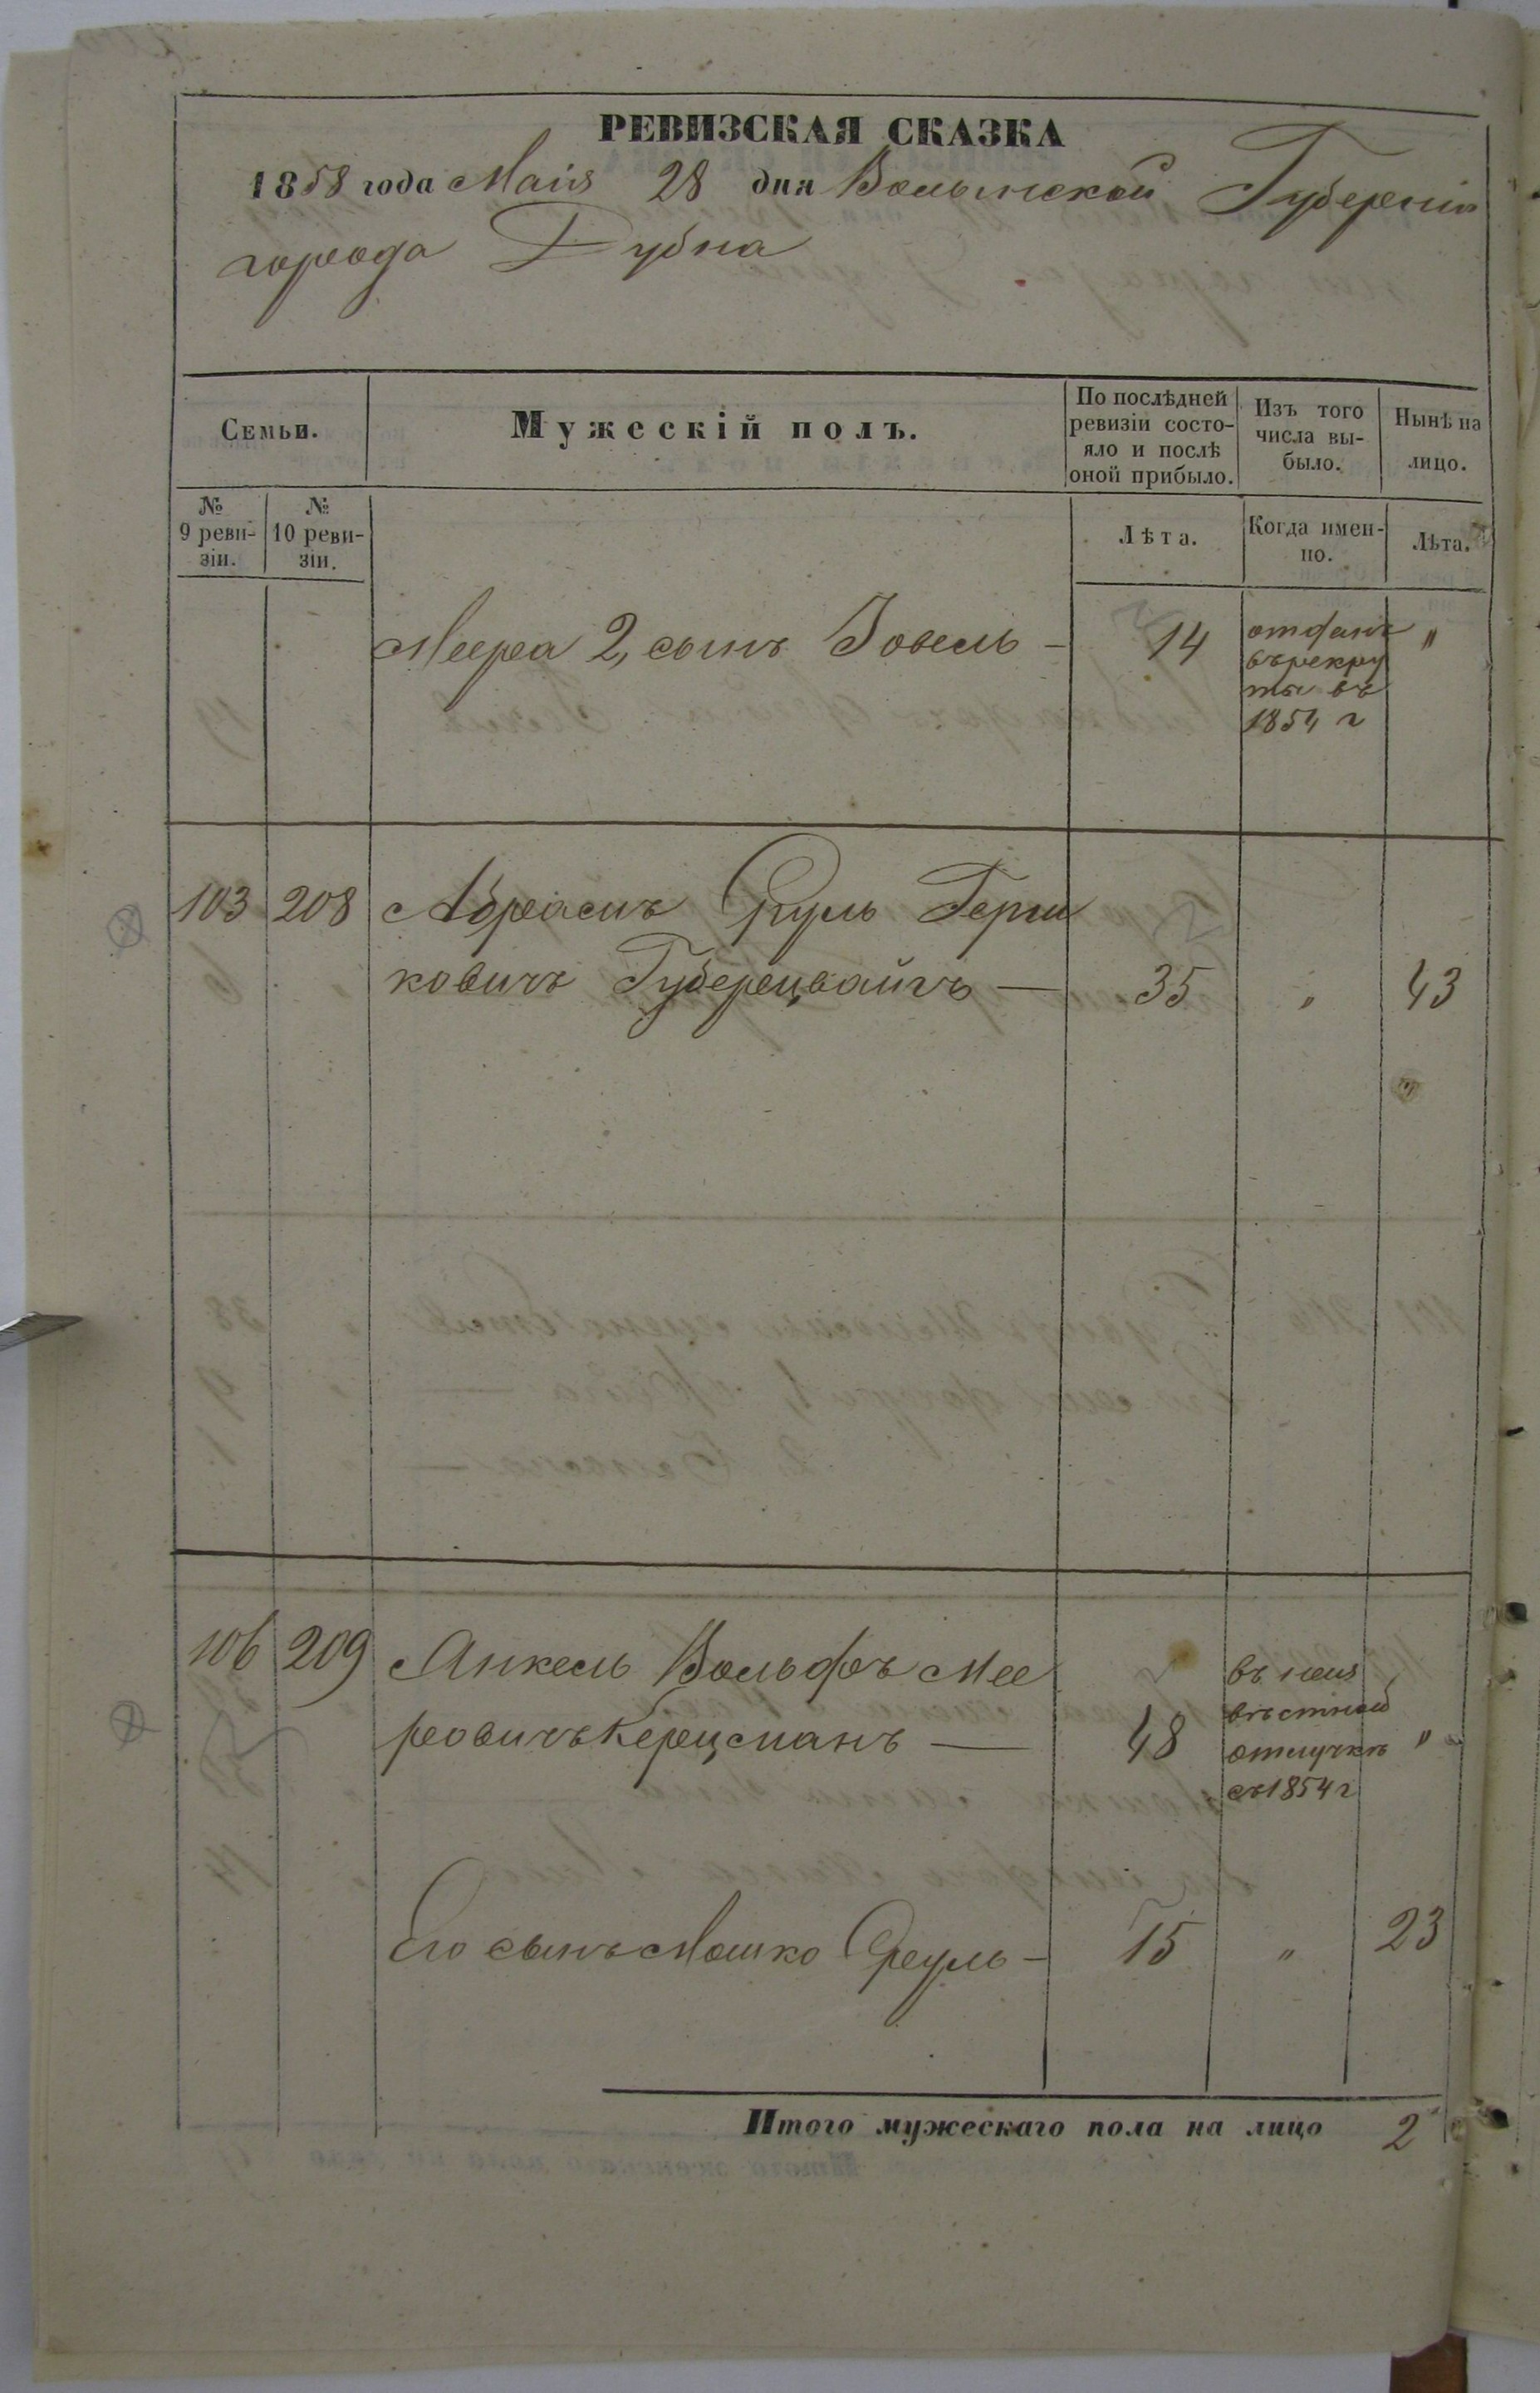 РЕВИЗСКАЯ СКАЗКА
1858 года Маія 28 дня Волынской Губерніи
города Дубна
Семьи.
Мужескій полъ.
По послѣдней ревизіи состо-
яло и послѣ
оной прибыло.
Изъ того
числа вы-
было.
Нынѣ на
лицо.
№
9 реви-
зіи.
№
10 реви-
зіи.
Лѣта.
Когда имен-
но.
Лѣта.
Меера 2, сынъ Іовель - 14 отданъ "
въ рекру
ты въ
1854 г
103 208 Абрамъ Сруль Герш
ковичъ — 35 " 43
106 209 Анкель Вольфъ Мее
ровичъ Керцманъ — 48 "
въ неиз
вѣстной
отлучкѣ
съ 1854 г
Его сынъ Мошко Сруль - 15 " 23
Итого мужескаго пола на лицо 2